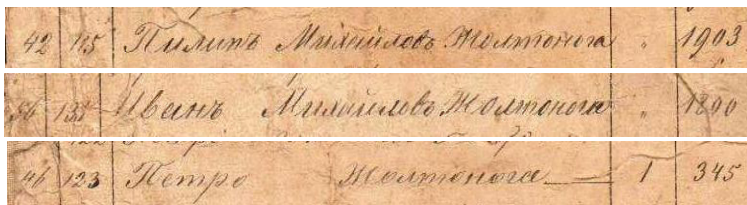 42 115 Пилипъ Михайловъ Жолтонога " 1903
56 135 Иванъ Михайловъ Жолтонога " 1890
46 123 Петро Жолтонога — 1 345